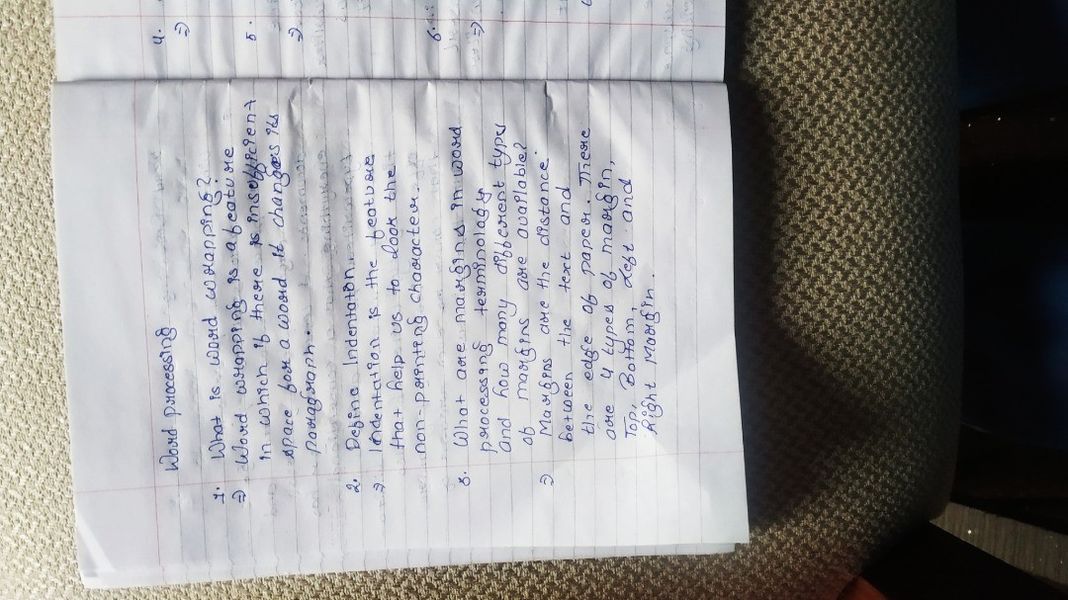 Word processing
1. What is word wrapping?
⇒ Word wrapping is a feature
in which if there is insufficient
space for a word it changes its
paragraph.
2. Define Indentation.
⇒ Indentation is the feature
that help us to look the
non-printing character.
3. What are margins in word
processing terminology
and how many different type
of margins are available?
⇒ Margins are the distance
between the text and
the edge of paper. There
are 4 types of margin,
Top, Bottom, Left and
Right Margin.
4.
⇒
5.
⇒
6.
⇒